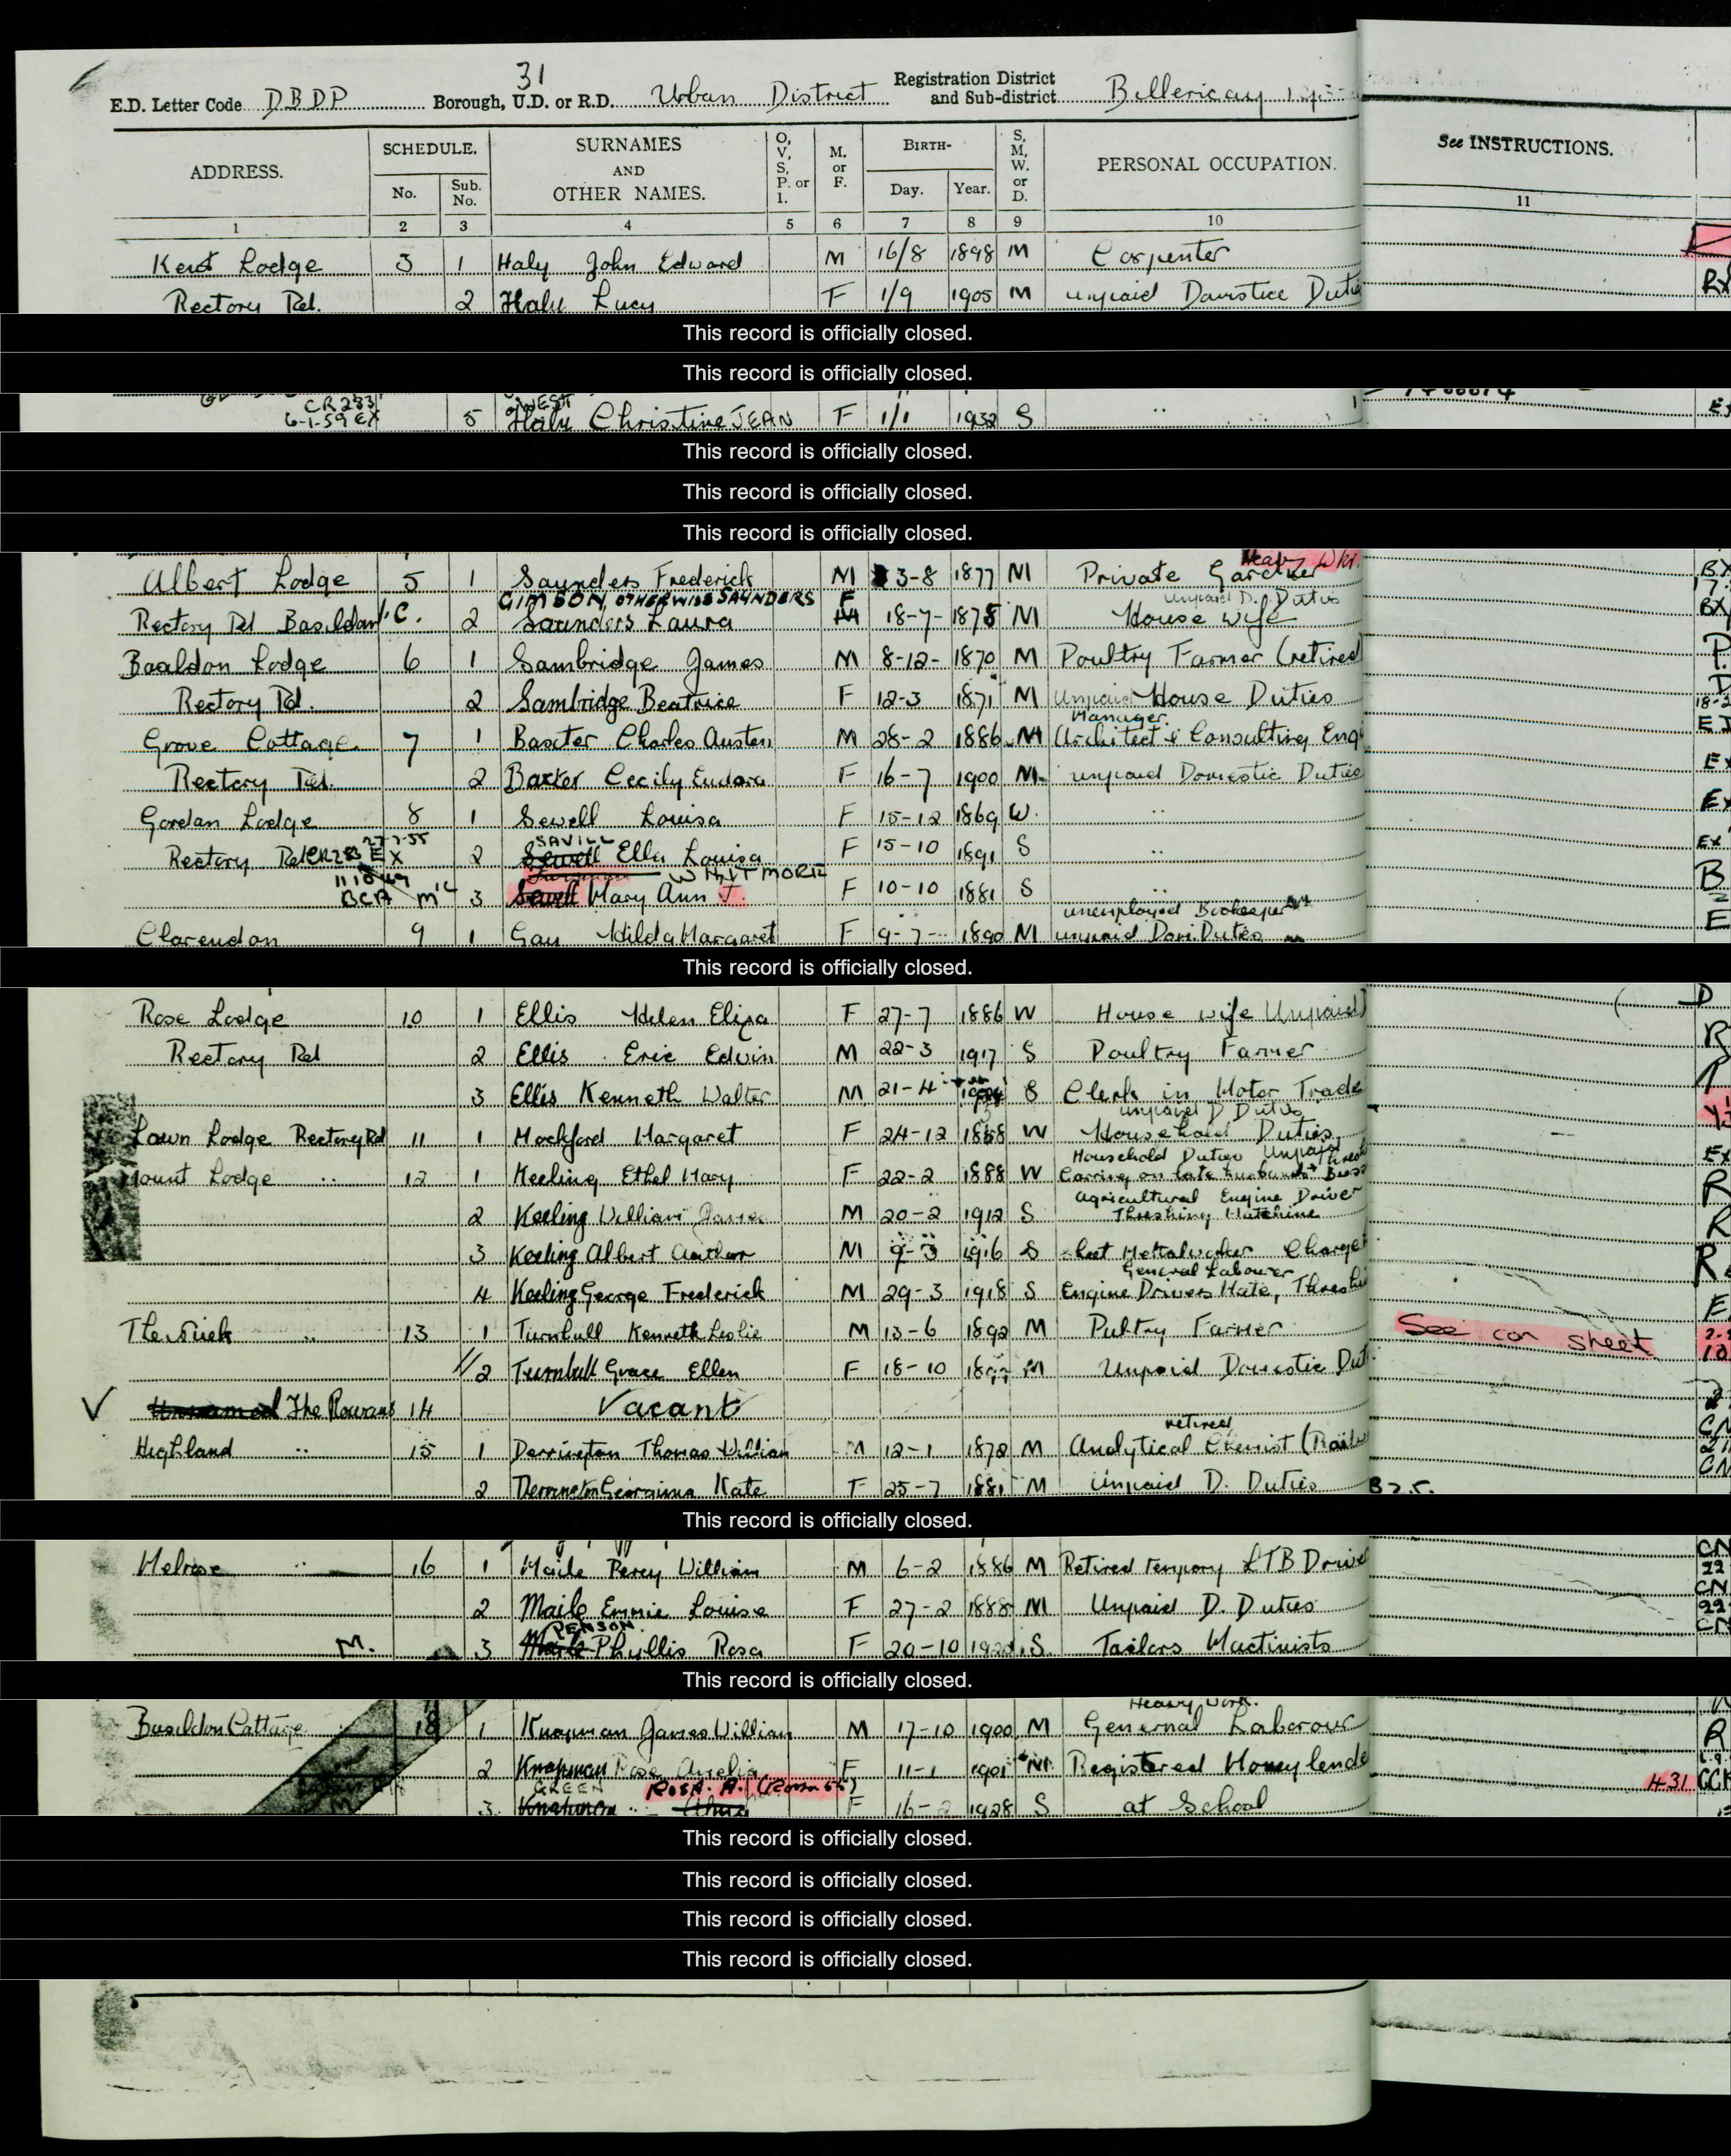 31
E.D. Letter Code DBDP Borough, U.D. or R.D. Urban District Registration District and Sub-district Billericay
ADDRESS. SCHEDULE. No. Sub. No. SURNAMES AND OTHER NAMES. O, V, S, P. or I. M. or F. BIRTH- Day. Year. S, M, W. or D. PERSONAL OCCUPATION. See INSTRUCTIONS.
1 2 3 4 5 6 7 8 9 10 11
Kent Lodge 3 1 Haly John Edward M 16/8 1898 M Carpenter
Rectory Rd. 2 Haly Lucy F 1/9 1905 M unpaid Domstice Dutie
This record is officially closed.
This record is officially closed.
CR283 WEST
6-1-59 EX 5 Haly Christine JEAN F 1/1 1932 S ..
This record is officially closed.
This record is officially closed.
This record is officially closed.
Heavy Wkr.
Albert Lodge 5 1 Saunders Frederick M 3-8 1877 M Private Gardner
GIMSON, OTHERWISE SAUNDERS F Unpaid D. Duties
Rectory Rd Basildon 2 Saunders Laura M 18-7- 1878 M House wife
Basildon Lodge 6 1 Sambridge James M 8-12- 1870 M Poultry Farmer (retired
Rectory Rd. 2 Sambridge Beatrice F 12-3 1871 M Unpaid House Duties
Manager.
Grove Cottage 7 1 Baxter Charles Austen M 28-2 1886 M Architect & Consulting Eng
Rectory Rd. 2 Baxter Cecily Eudora F 16-7 1900 M unpaid Domestic Duties
Gordan Lodge 8 1 Sewell Louisa F 15-12 1869 W. ..
27-7-55 SAVILL
Rectory Rd CR283 EX 2 Sewell Ella Louisa F 15-10 1891 S ..
WHITMORE
BCA 3 Sewell Mary Ann J. F 10-10 1881 S ..
unemployed Bookeeper
Clarendon 9 1 Gay Hilda Margaret F 9-7- 1890 M unpaid Dom. Duties
This record is officially closed.
Rose Lodge 10 1 Ellis Helen Eliza F 27-7 1886 W House wife Unpaid)
Rectory Rd 2 Ellis Eric Edwin M 22-3 1917 S Poultry Farmer
3 Ellis Kenneth Walter M 21-4 S Clerk in Motor Trade
unpaid D Duties
Lawn Lodge Rectory Rd 11 1 Mockford Margaret F 24-12 W Household Duties
Household Duties Unpaid
Mount Lodge .. 12 1 Keeling Ethel Mary F 22-2 1888 W Carring on late husbands Buss
Agricultural Engine Driver
2 Keeling William James M 20-2 1912 S Threshing Matchine
3 Keeling Albert Arthur M 9-3 1916 S Sheet Mettalworker Charge
General Labourer
4 Keeling George Frederick M 29-3 1918 S Engine Drivers Mate, Thresh
The 13 1 Turnbull Kenneth Leslie M 13-6 1892 M Pultry Farmer See con sheet
2 Turnbull Grace Ellen F 18-10 M Unpaid Domestic Dut
✓ Unnamed The Rowans 14 Vacant
retired
Highland .. 15 1 Derrington Thomas William M 12-1 1872 M Analytical Chemist
2 Derrington Georgina Kate F 25-7 1881 M Unpaid D. Duties
This record is officially closed.
Melrose .. 16 1 Maile Percy William M 6-2 1886 M Retired tempory LTB Drive
2 Maile Emmie Louise F 27-2 1888 M Unpaid D. Duties
PENSON
M. 3 Maile Phyllis Rosa F 20-10 S. Tailors Mactinists
This record is officially closed.
Heavy Work.
Basildon Cottage 18 1 Knapman James William M 17-10 1900 M General Laborour
2 Knapman Rose Amelia F 11-1 1901 M Registered Moneylende
GREEN ROSE. A.
3 Knapman .. F 16-2 1928 S at School 431
This record is officially closed.
This record is officially closed.
This record is officially closed.
This record is officially closed.